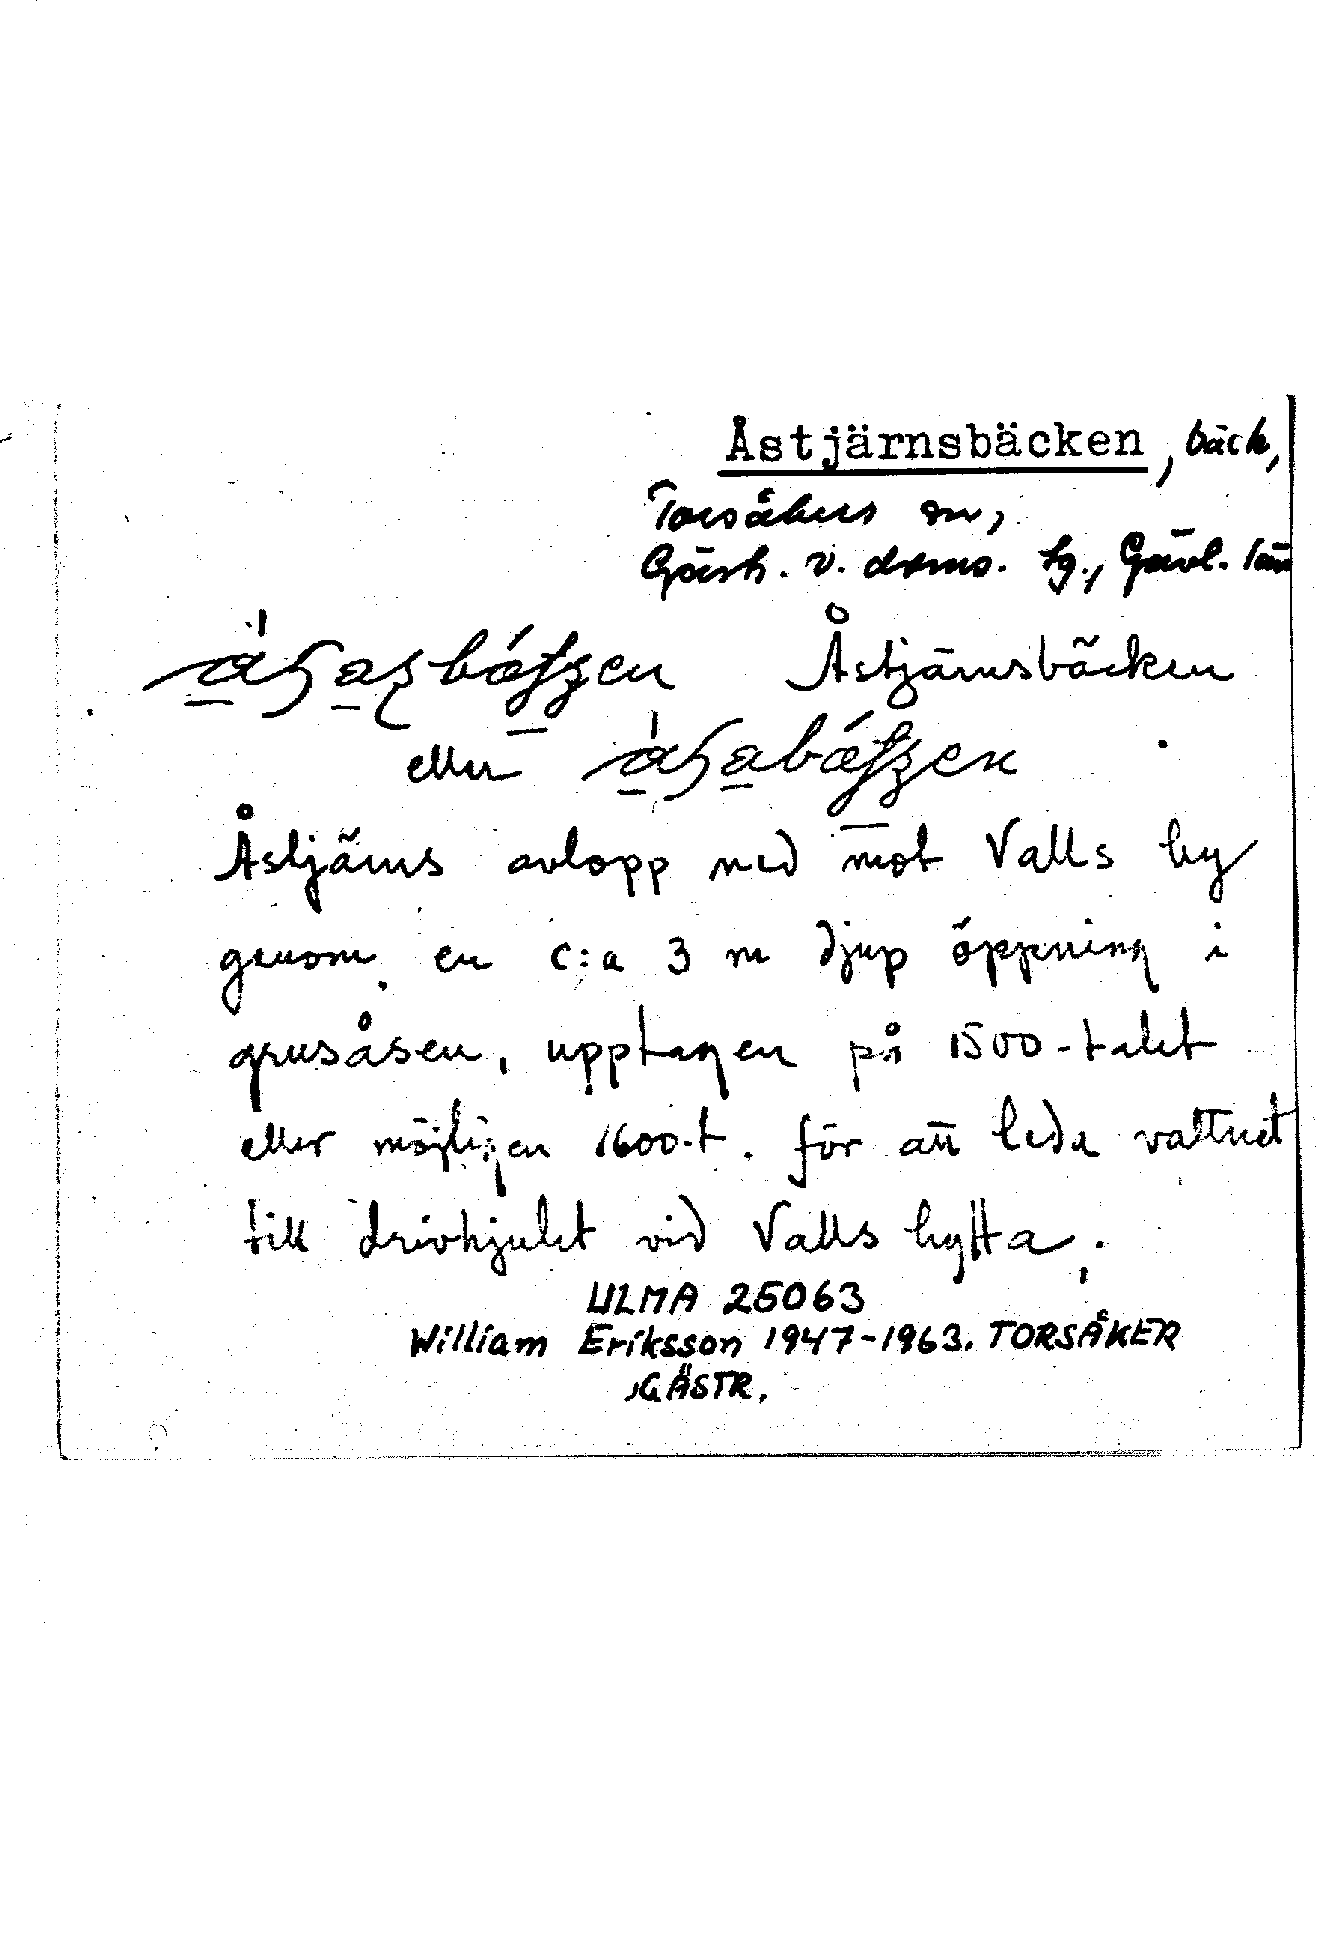 Åstjärnsbäcken, bäck,
Torsåkers sn,
Gästr. v. doms. tg., Gävl. län
Åstjärnsbäcken
eller
Åstjärns avlopp ned mot Valls by
genom en c:a 3 m djup öppning i
grusåsen, upptagen på 1500-talet
eller möjligen 1600-t. för att leda vattnet
till drivhjulet vid Valls hytta.
ULMA 25063
William Eriksson 1947-1963. TORSÅKER
,GÄSTR.